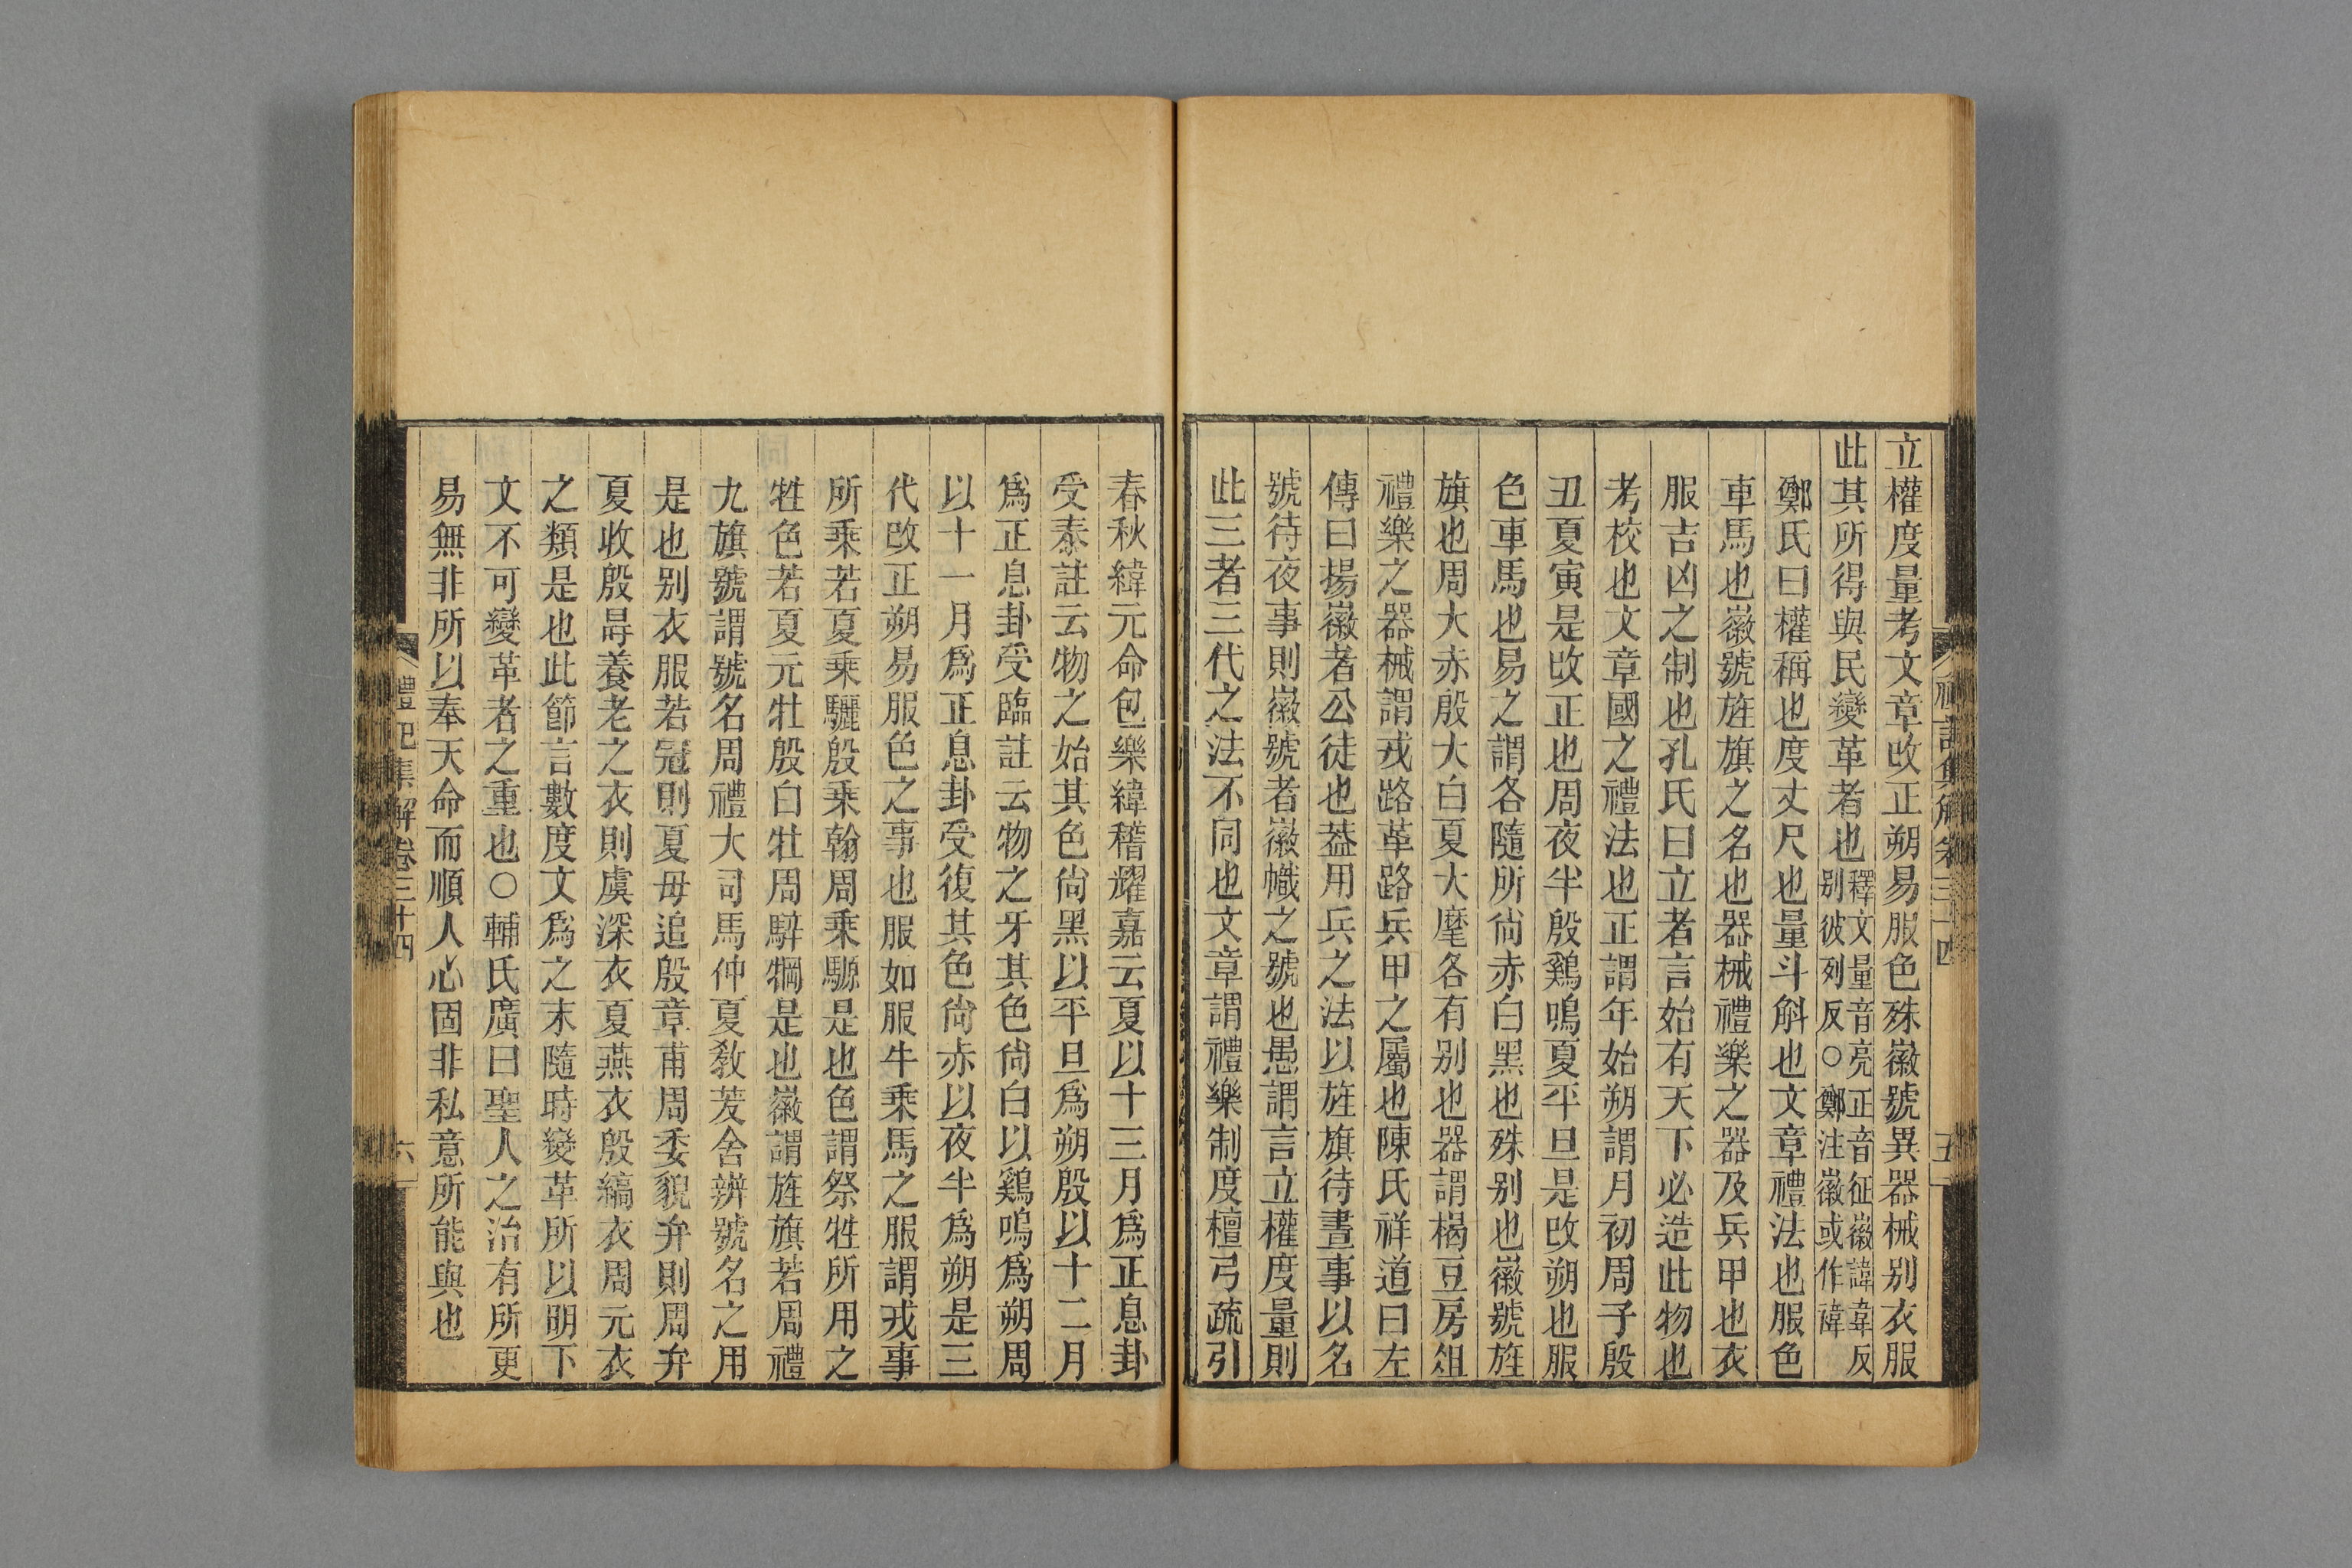 立權度量考文章改正朔易服色殊徽號異器械别衣服
此其所得與民變革者也釋文量音亮正音征徽諱韋反
别彼列反○鄭注徽或作禕
鄭氏曰權稱也度丈尺也量斗斛也文章禮法也服色
車馬也徽號旌旗之名也器械禮樂之器及兵甲也衣
服吉凶之制也孔氏曰立者言始有天下必造此物也
考校也文章國之禮法也正謂年始朔謂月初周子殷
丑夏寅是改正也周夜半殷鷄鳴夏平旦是改朔也服
色車馬也易之謂各隨所尙赤白黑也殊别也徽號旌
旗也周大赤殷大白夏大麾各有别也器謂楬豆房俎
禮樂之器械謂戎路革路兵甲之屬也陳氏祥道曰左
傳曰揚徽者公徒也葢用兵之法以旌旗待晝事以名
號待夜事則徽號者徽幟之號也愚謂言立權度量則
此三者三代之法不同也文章謂禮樂制度檀弓疏引
春秋緯元命包樂緯稽耀嘉云夏以十三月爲正息卦
受泰註云物之始其色尙黑以平旦爲朔殷以十二月
爲正息卦受臨註云物之牙其色尙白以鷄鳴爲朔周
以十一月爲正息卦受復其色尙赤以夜半爲朔是三
代改正朔易服色之事也服如服牛乘馬之服謂戎事
所乘若夏乘驪殷乘翰周乘騵是也色謂祭牲所用之
牲色若夏元牡殷白牡周騂犅是也徽謂旌旗若周禮
九旗號謂號名周禮大司馬仲夏敎茇舍辨號名之用
是也别衣服若冠則夏毋追殷章甫周委貌弁則周弁
夏收殷冔養老之衣則虞深衣夏燕衣殷縞衣周元衣
之類是也此節言數度文爲之末隨時變革所以明下
文不可變革者之重也○輔氏廣曰聖人之治有所更
易無非所以奉天命而順人心固非私意所能與也
禮記集解卷三十四
六